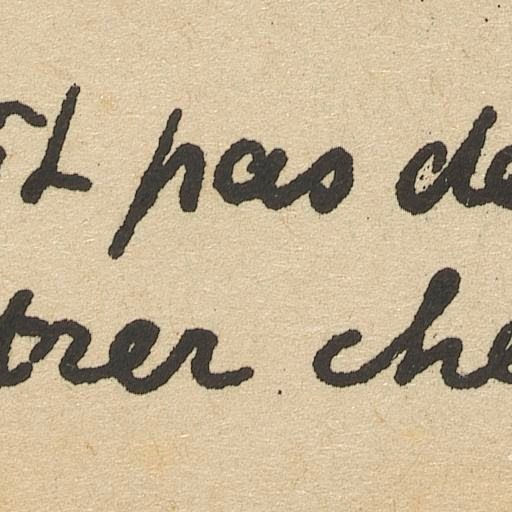 pas de
trer che